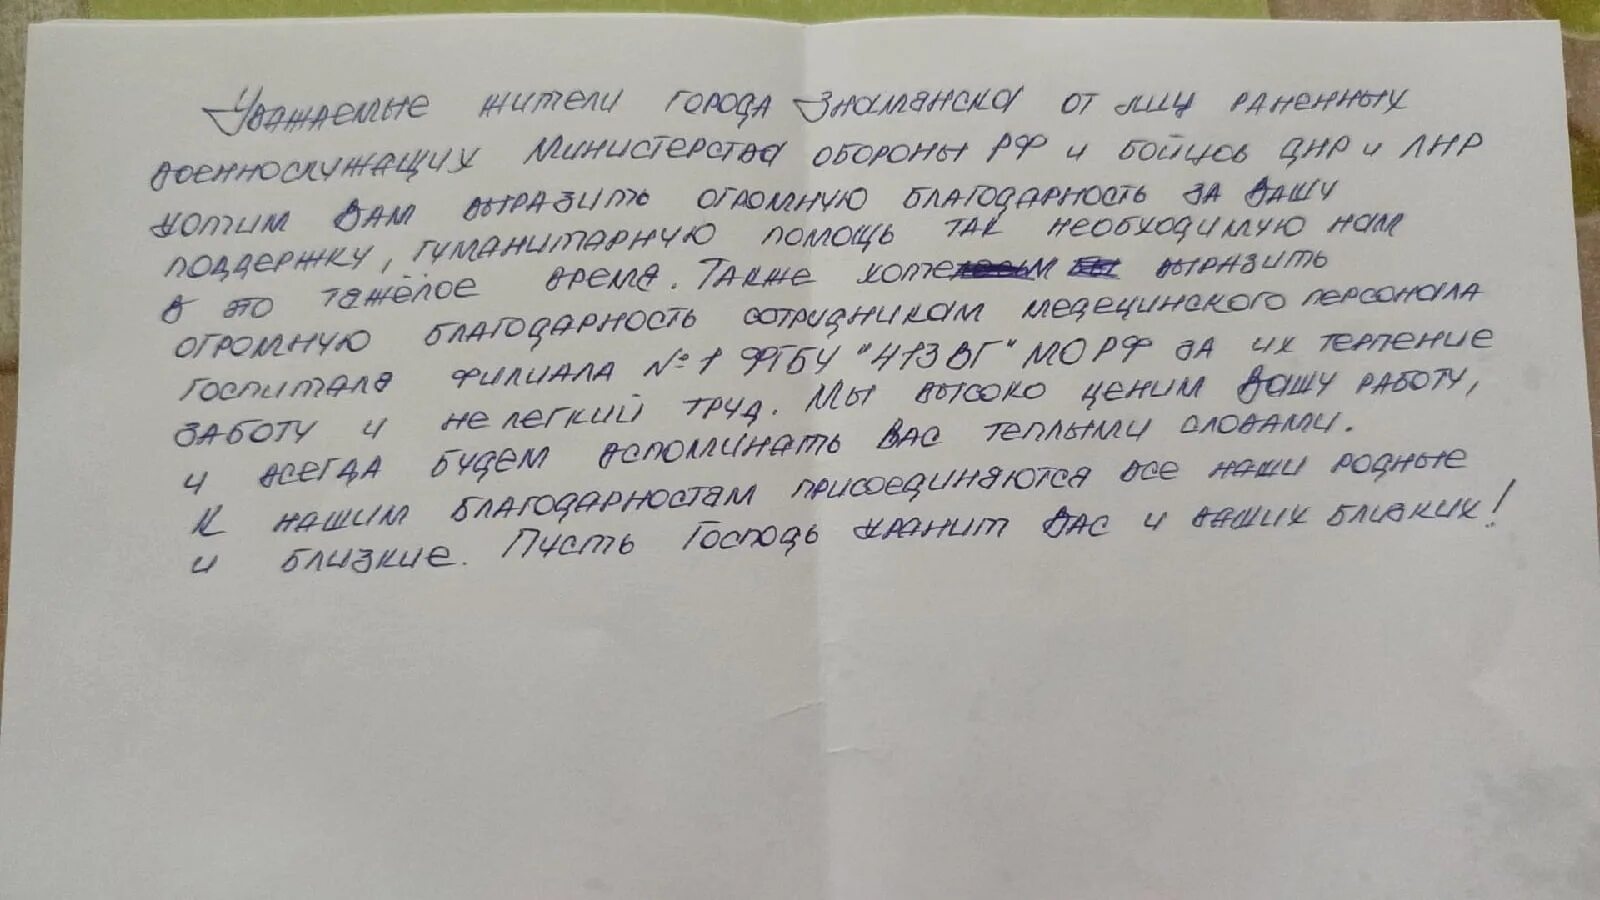 Уважаемые жители города Знаманска от лиц раненных
военнослужащих Министерства обороны РФ и бойцов ДНР и ЛНР
хотим Вам выразить огромную благодарность за Вашу
поддержку, гуманитарную помощь так необходимую нам
в это тяжёлое время. Также хотем выразить
огромную благодарность сотрудникам медецинского персонала
госпиталя филиала №1 ФГБУ "413 ВГ" МО РФ за их терпение
заботу и не легкий труд. Мы высоко ценим Вашу работу,
и всегда будем вспоминать Вас теплыми словами.
К нашим благодарностам присоединяются все наши родные
и близкие. Пусть Господь хранит Вас и ваших близких!